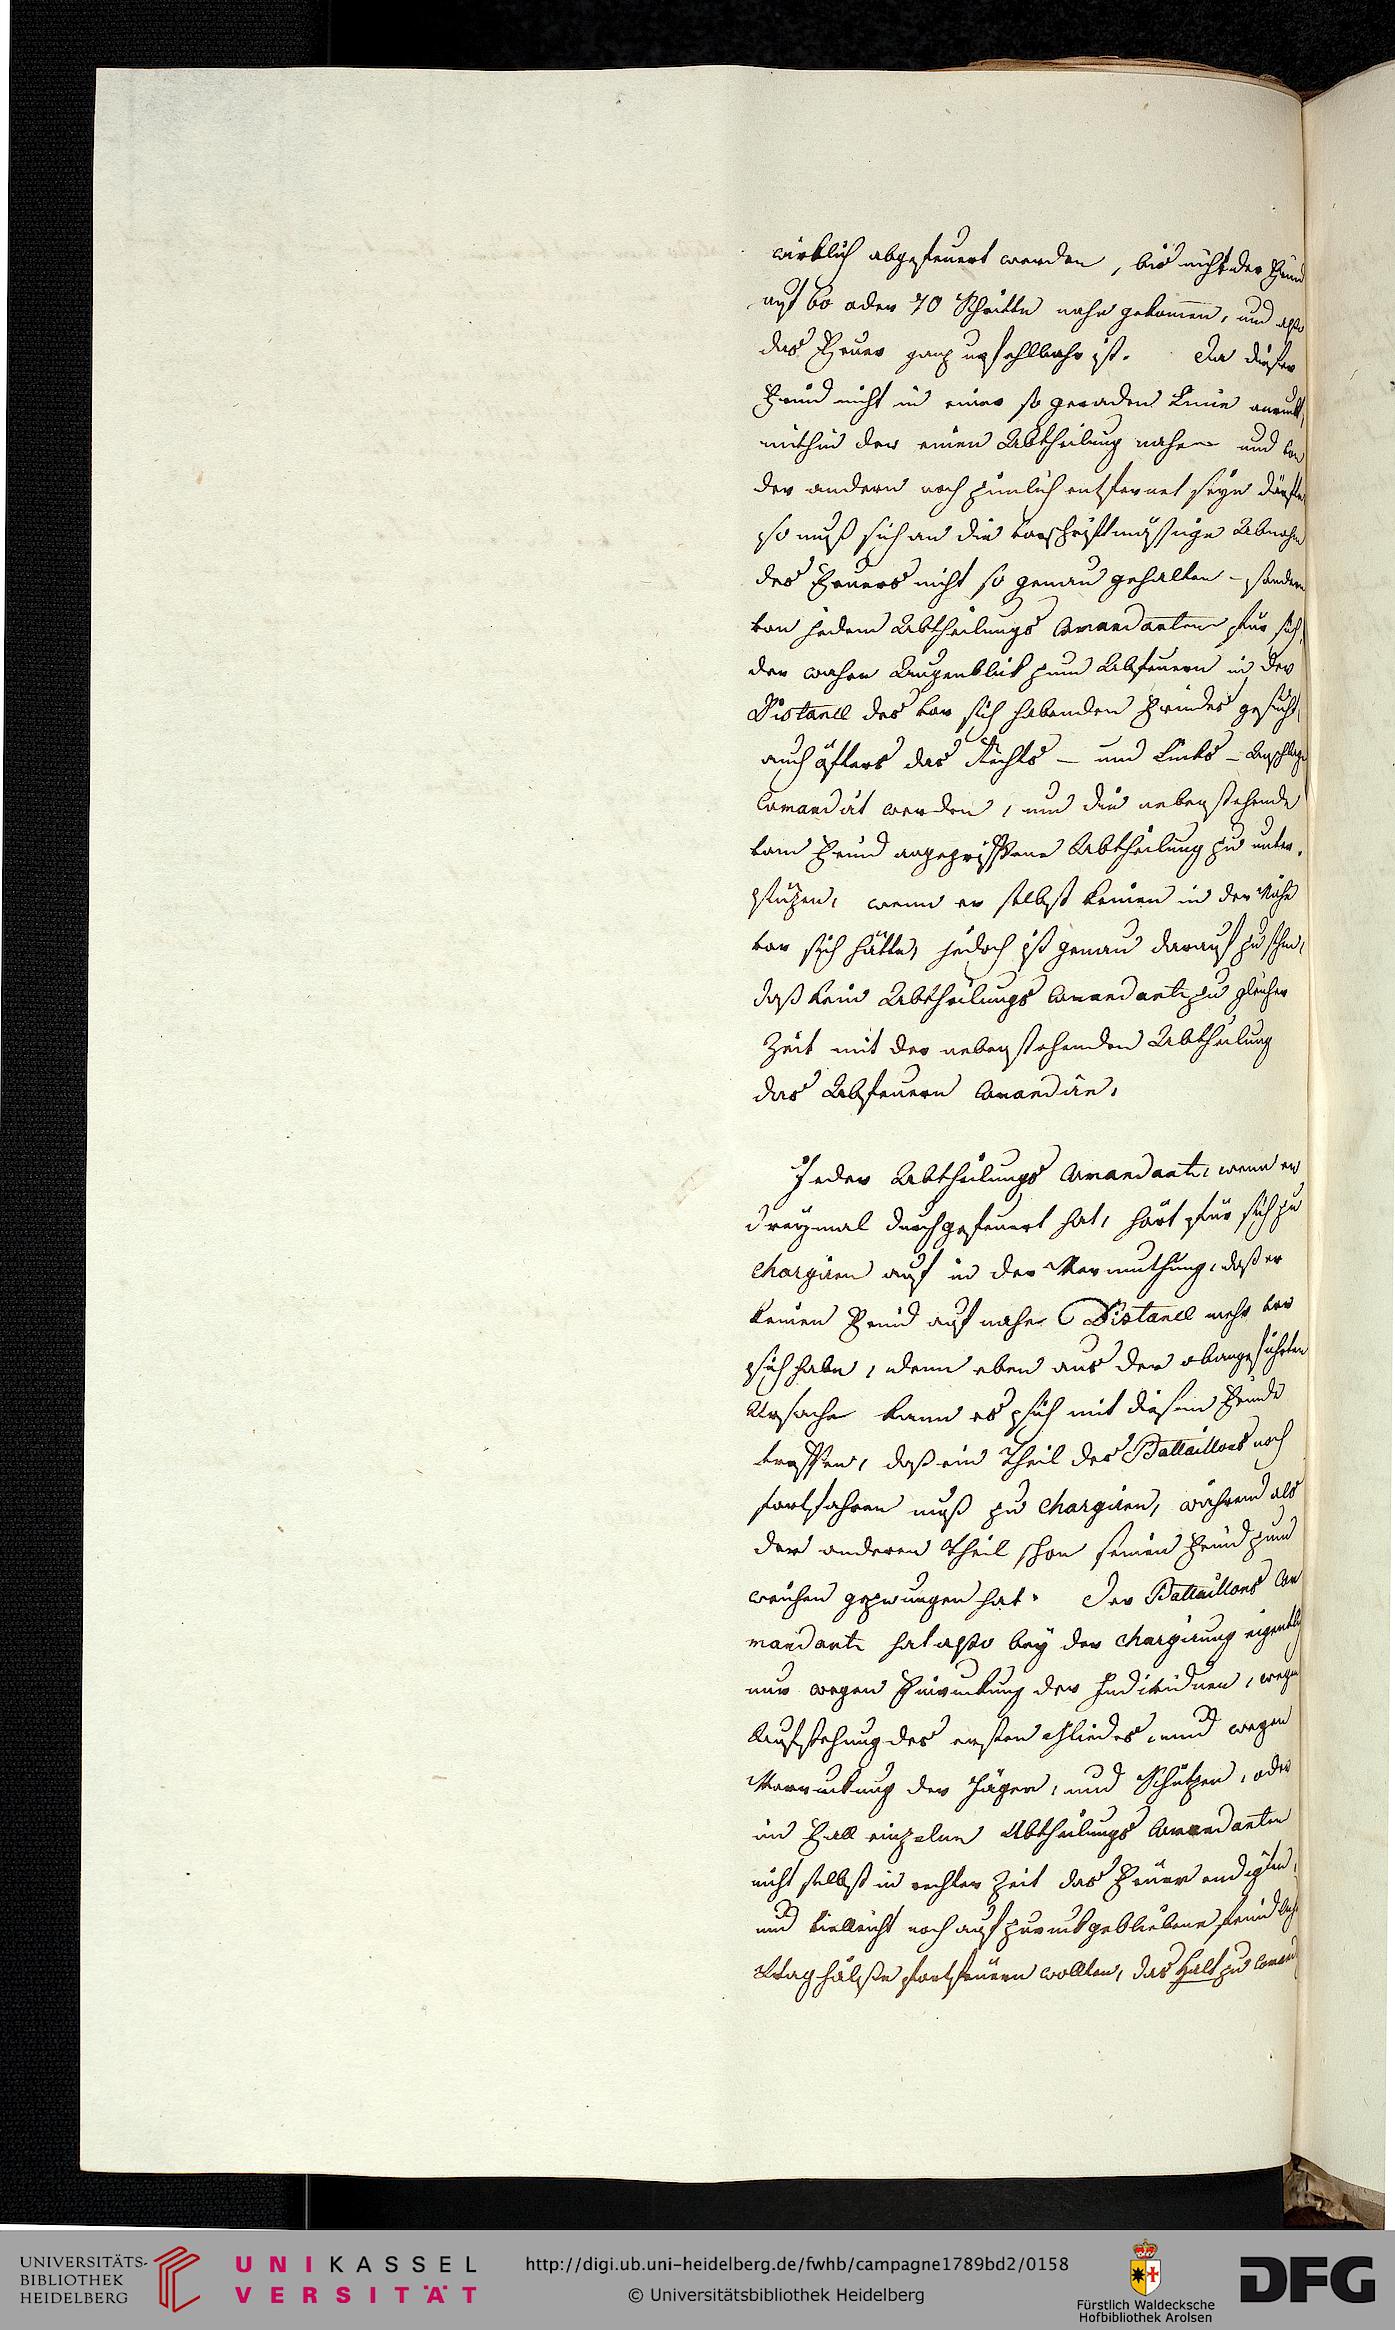 wirklich abgefeuert werden, bis nicht der Feind
auf 60 oder 70 Schritte nahe gekom̅en, und also
das Feuer ganz unfehlbahr ist. Da dieser
Feind nicht in einer so geraden Linie anrukt,
mithin der einen Abtheilung nahe und von
der andern noch zimlich entfernet seyn därfte
so muß sich an die vorschriftmässige Abnahm
des Feuers nicht so genau gehalten – sondern
von jedem Abtheilungs Comandanten für sich
der wahre Augenblik zum Abfeuern in der
Distance des vor sich habenden Feindes gesucht,
auch öfters das Rechts – und Links – Anschlagen
Comandirt werden, um die nebenstehende
vom Feind angegriffene Abtheilung zu unter-
stüzen, wenn er selbst keinen in der Nähe
vor sich hätte, jedoch ist genau darauf zu sehen,
daß kein Abtheilungs Comandant zu gleicher
Zeit mit der nebenstehenden Abtheilung
das Abfeuern Comandire.
Jeder Abtheilungs Comandant, wenn er
dreymal durchgefeuert hat, hört für sich zu
chargiren auf in der Vermuthung, daß er
keinen Feind auf nahe Distance mehr vor
sich habe, denn eben aus der obangeführten
Ursache kann es sich mit diesem Feinde
treffen, daß ein Theil des Battaillons noch
fortfahren muß zu chargiren, während als
der anderen Theil schon seinen Feind zum
weichen gezwungen hat. Der Battaillons Com
mandant hat also bey der Chargirung eigentlich
nur wegen Einrukung der Individuen, wegen
Aufstehung des ersten Gliedes, und wegen
Vorrukung der Jäger, und Schützen, oder
im Fall einzelne Abtheilungs Comandanten
nicht selbst in rechter Zeit das Feuer endigten,
und vielleicht noch auf zurukgebliebene feindliche
Waghälse fortfeuern wollten, das Halt zu Comand
UNIVERSITÄTS-
BIBLIOTHEK
HEIDELBERG
UNIKASSEL
VERSITÄT
http://digi.ub.uni-heidelberg.de/fwhb/campagne1789bd2/0158
© Universitätsbibliothek Heidelberg
Fürstlich Waldecksche
Hofbibliothek Arolsen
DFG